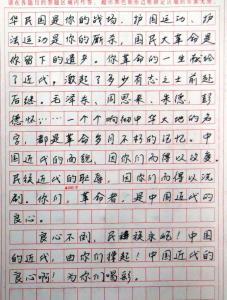 请在各题目的答题区域内作答，超出黑色矩形边框限定区域的答案无效
华民国是你们的战场，护国运动、护
法运动是你们的厮杀，国民大革命是
你留下的遗声。你革命的一生献给
了近代。激起了多少有志之士前赴
后继。毛泽东、周恩来、朱德、彭
德怀……一个个响彻中华大地的名
字，都是革命岁月不朽的记忆。中
国近代的面貌，因你们而得以改变。
民族近代的耻辱，因你们而得以洗
刷。你们，革命者，是中国近代的
良心。
良心不倒，民族永昵！中国
的近代，由你们撑起！中国近代的
良心啊！为你们喝彩。